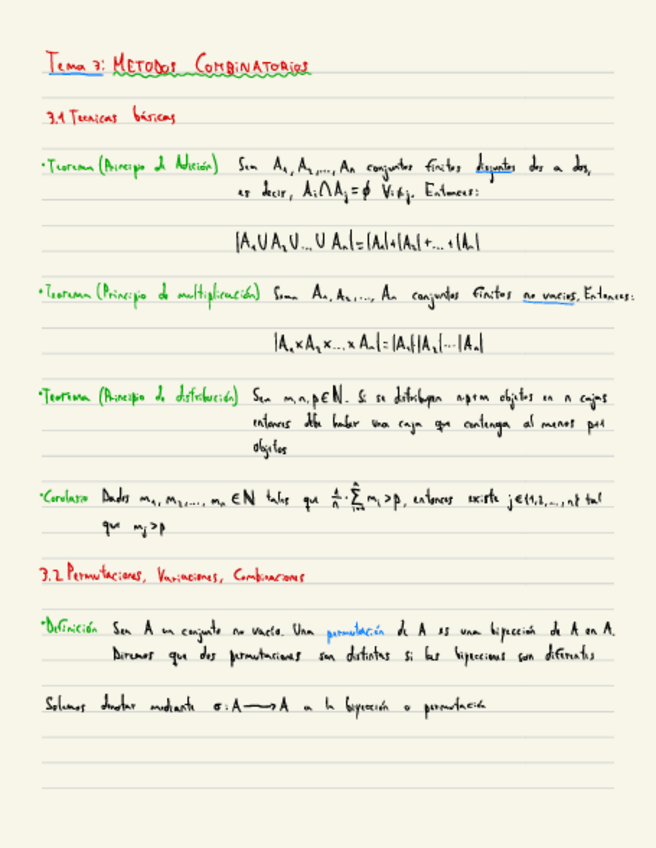 Tema 3: METODOS COMBINATORIOS
3.1 Tecnicas básicas
•Teorema (Principio de Adición) Sean A₁, A₂,..., Aₙ conjuntos finitos disjuntos dos a dos,
es decir, Aᵢ∩Aⱼ=ϕ ∀i≠j. Entonces:
|A₁∪A₂∪...∪Aₙ|=|A₁|+|A₂|+...+|Aₙ|
•Teorema (Principio de multiplicación) Sean A₁, A₂,..., Aₙ conjuntos finitos no vacíos. Entonces:
|A₁×A₂×...×Aₙ|=|A₁||A₂|...|Aₙ|
•Teorema (Principio de distribución) Sean m,n,p∈ℕ. Si se distribuyen n·p+m objetos en n cajas
entonces debe haber una caja que contenga al menos p+1
objetos
•Corolario Dados m₁, m₂,..., mₙ ∈ℕ tales que 1/n · Σⁿᵢ₌₁ mᵢ>p, entonces existe j∈{1,2,...,n} tal
que mⱼ>p
3.2 Permutaciones, Variaciones, Combinaciones
•Definición Sea A un conjunto no vacío. Una permutación de A es una biyección de A en A.
Diremos que dos permutaciones son distintas si las biyecciones son diferentes
Solemos denotar mediante σ:A⟶A a la biyección o permutación